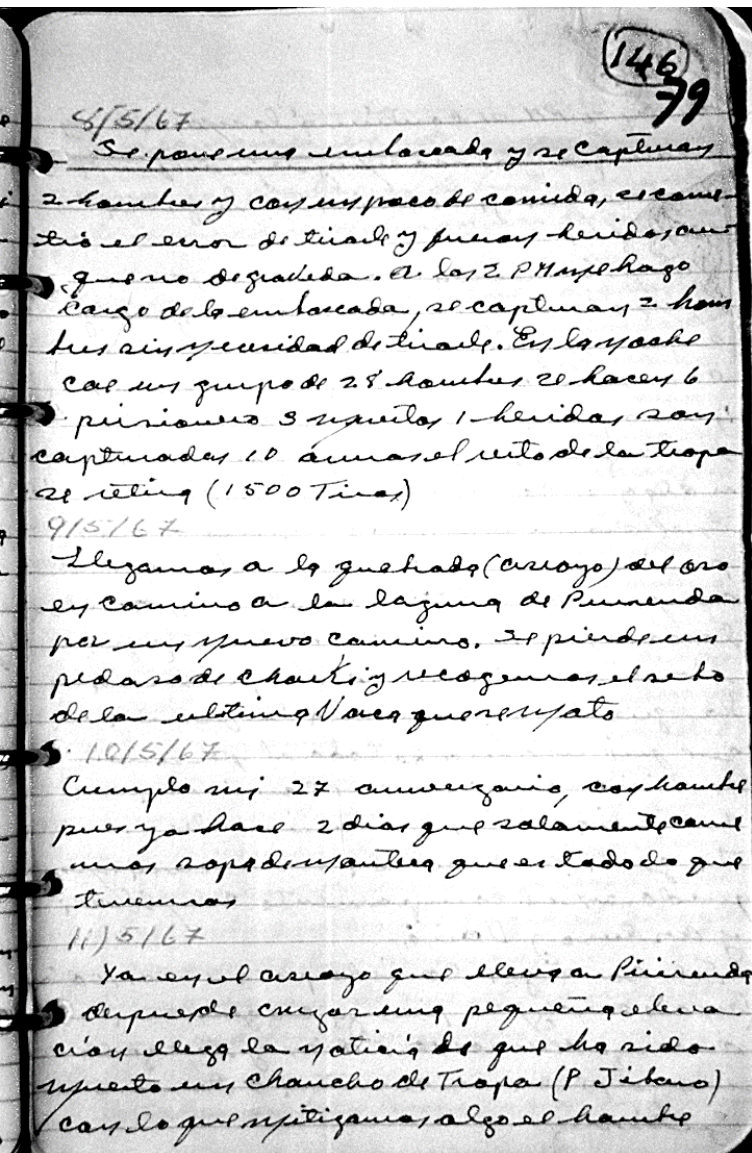 146
79
8/5/67
Se pone una emboscada y se capturan
2 hombres y con un poco de comida, se come-
tió el error de tirarle y fueron heridos aun
que no de graveda. A las 2 PM me hago
cargo de la emboscada, se capturan 2 hom
bres sin necesidad de tirarle. En la noche
cae un grupo de 28 hombres se hacen 6
prisionero 3 muertos 1 heridos son
capturadas 10 armas el resto de la tropa
se retira (1500 Tiros)
9/5/67
Llegamos a la quebrada (arroyo) del oro
en camino a la laguna de Pirirenda
por un nuevo camino. Se pierde un
pedaso de charki y recogemos el sebo
de la ultima Vaca que se mato
10/5/67
Cumplo mi 27 aniverzario, con hambre
pues ya hace 2 dias que solamente come
mos sopa de manteca que es todo lo que
tenemos
11/5/67
Ya en el arroyo que lleva a Pirirenda
despues de cruzar una pequeña eleva
ción llega la noticia de que ha sido
muerto un chancho de Tropa (P Jibaro)
con lo que mitigamos algo el hambre